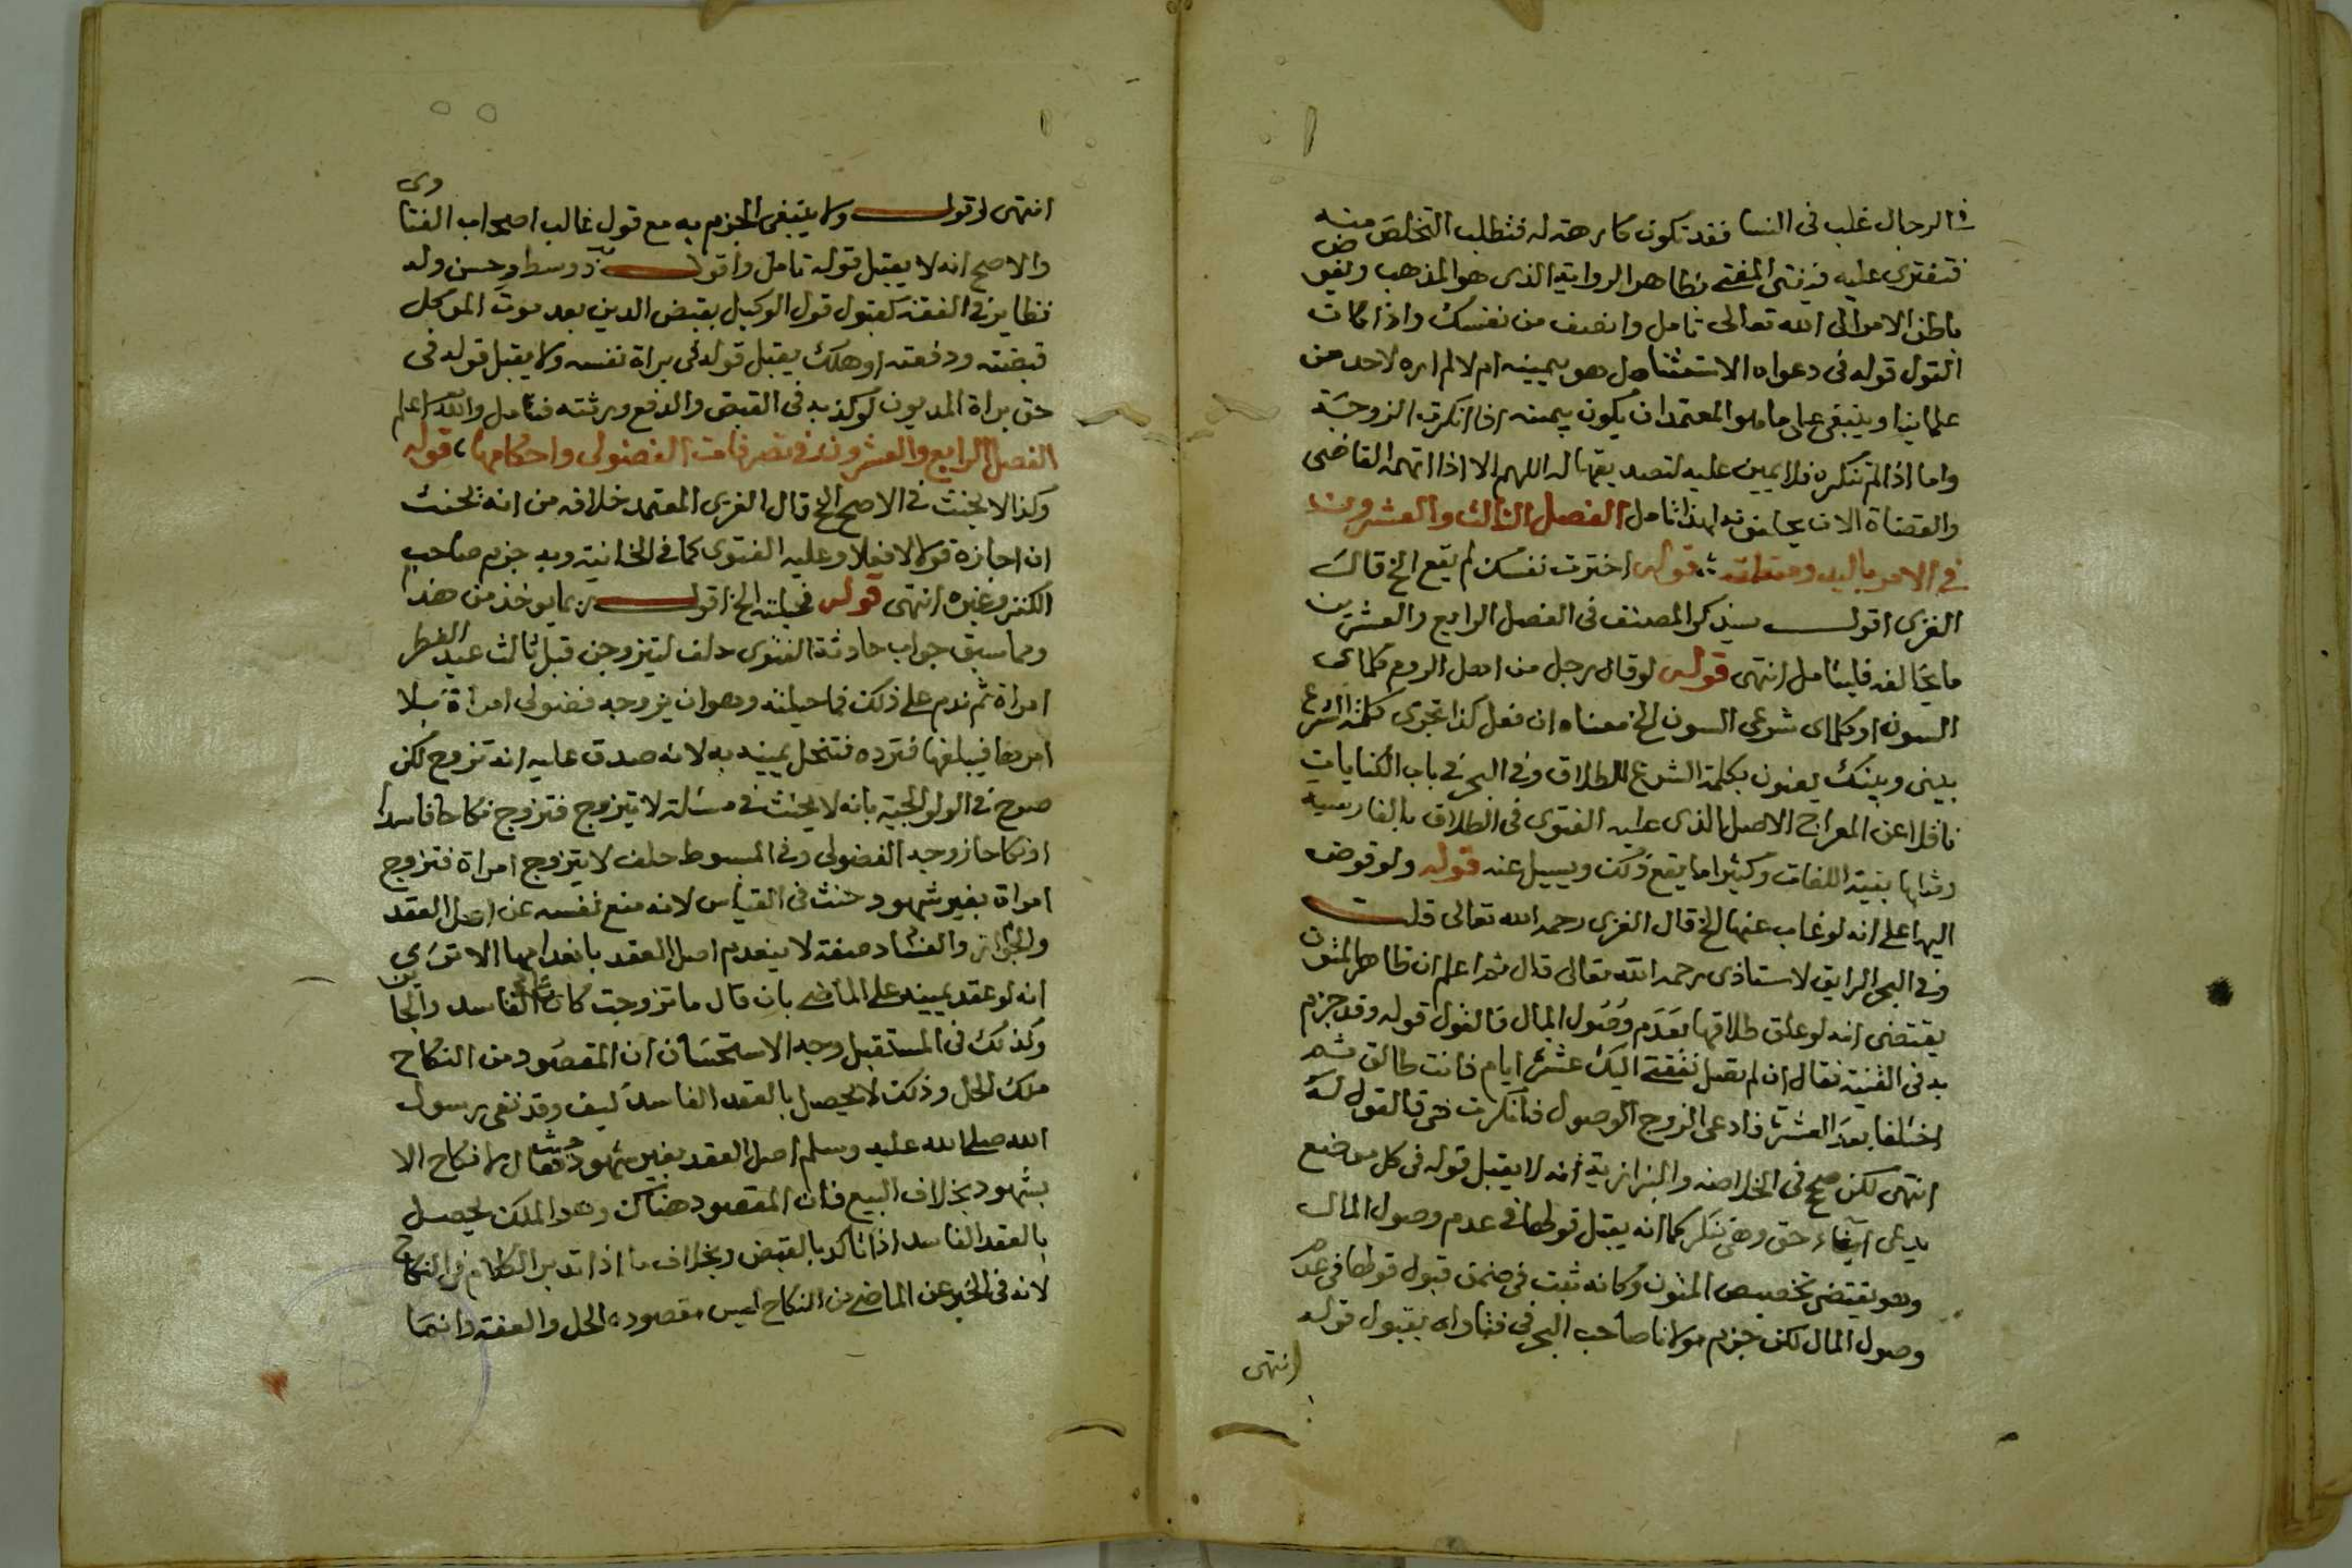 في الرجال غلب في النسا فقد تكون كارهة له فتطلب التخلص منه
فتفترى عليه فيفتى المفتى بظاهر الرواية الذى هو المذهب ويفوض
باطن الامر الى الله تعالى تامل وانصف من نفسك واذا كان
القول قوله فى دعواه الاستثنا هل هو بيمينه ام لا لم اره لاحد من
علمائنا وينبغى على ما هو المعتمد ان يكون بيمينه اذا انكرته الزوجة
واما اذا لم تنكره فلا يمين عليه لتصديقها له اللهم الا اذا اتهمه القاضى
والقضاة الان يحلفونه لهذا تامل الفصل الثالث والعشرون
في الامر باليد ومتعلقاته قوله اخترت نفسك لم يقع الخ قال
الغزى اقول سيذكر المصنف فى الفصل الرابع والعشرين
ما يخالفه فليتامل انتهى قوله لو قال رجل من اهل الروم كلماى
السون او كلماى شرعى السون الخ معناه ان فعل كذا تجرى كلمة الشرع
بينى وبينك يعنون بكلمة الشرع الطلاق وفى البحر فى باب الكنايات
ناقلا عن المعراج الاصل الذى عليه الفتوى فى الطلاق بالفارسية
بقية اللغات وكثيرا ما يقع ذلك ويسيل عنه قوله ولو فوض
اليها على انه لو غاب عنها الخ قال الغزى رحمه الله تعالى قلت
وفى البحر الرايق لاستاذى رحمه الله تعالى قال ثم اعلم ان ظاهر المتون
يقتضى انه لو علق طلاقها بعدم وصول المال فالقول قوله وقد جزم
به فى القنية فقال ان لم تصل نفقتى اليك عشرة ايام فانت طالق ثم
اختلفا بعد العشرة فادعى الزوج الوصول فانكرت هى فالقول له
انتهى لكن صح فى الخلاصة والبزازية انه لا يقبل قوله فى كل موضع
يدعى ايفاء حق وهى تنكر كما انه يقبل قولها فى عدم وصول المال
وهو يقتضى تخصيص المتون وكانه ثبت فى ضمن قبول قولها فى عدم
وصول المال لكن جزم مولانا صاحب البحر فى فتاواه بقبول قوله
انتهى
انتهى اقول ولا ينبغى الجزم به مع قول غالب اصحاب الفتاوى
والاصح انه لا يقبل قوله تامل واقول وسط حسن وله
نظاير فى الفقه كقبول قول الوكيل بقبض الدين بعد موت الموكل
قبضته ودفعته او هلك يقبل قوله فى براة نفسه ولا يقبل قوله فى
حق براة المديون لو كذبه فى القبض والدفع ورثته فتامل والله اعلم
الفصل الرابع والعشرون فى تصرفات الفضولى واحكامها قوله
وكذا لا يحنث فى الاصح الخ قال الغزى المعتمد خلافه من انه يحنث
ان اجازه قولا لا فعلا وعليه الفتوى كما فى الخانية وبه جزم صاحب
الكنز وغيره انتهى قوله فحيلته الخ اقول ربما يوخذ من هذا
ومما سبق جواب حادثة الفتوى حلف ليتزوجن قبل ثالث عيد الفطر
امراة ثم ندم على ذلك فما حيلته وهو ان يزوجه فضولى امراة بلا
امرها فيبلغها فترده فتنحل يمينه به لانه صدق عليه انه تزوج لكن
صرح فى الولوالجية بانه لا يحنث فى مسئلة لا يتزوج فتزوج نكاحا فاسدا
او نكاحا زوجه الفضولى وفى المبسوط حلف لا يتزوج امراة فتزوج
امراة بغير شهود حنث فى القياس لانه منع نفسه عن اصل العقد
والجواز والفساد صفة لا ينعدم اصل العقد بانعدامها الا ترى
انه لو عقد يمينه على الماضى بان قال ما تزوجت كان على الفاسد والجايز
وكذلك فى المستقبل وجه الاستحسان ان المقصود من النكاح
ملك الحل وذلك لا يحصل بالعقد الفاسد كيف وقد نفى رسول
الله صلى الله عليه وسلم اصل العقد بغير شهود حيث قال لا نكاح الا
بشهود بخلاف البيع فان المقصود هناك وهو الملك يحصل
بالعقد الفاسد اذا تاكد بالقبض وبخلاف ما اذا الكلام فى النكاح
لانه فى الخبر عن الماضى من النكاح ليس مقصوده الحل والعفة وانما